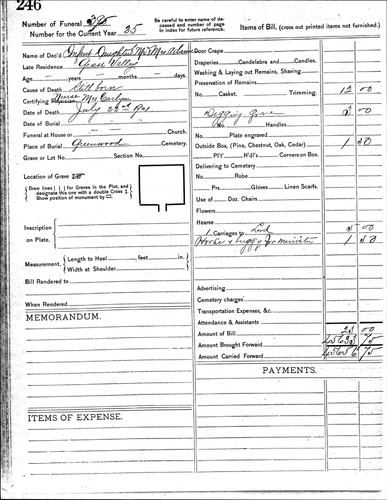 246
Number of Funeral
Number for the Current Year 35
Be careful to enter name of deceased and number of page in index for future reference.
Items of Bill. (cross out printed items not furnished.)
Name of Dec'd Infant Daughter Mr & Mrs Adams
Late Residence Grass Valley
Age — years — months — days.
Cause of Death Still born
Certifying Nurse
Date of Death July 23rd
Date of Burial
Funeral at House or Church.
Place of Burial Greenwood Cemetery.
Grave or Lot No. Section No.
Location of Grave
Draw lines [ ] for Graves in the Plot, and designate this one with a double Cross
Show position of monument by
Inscription on Plate.
Measurement. Length to Heel feet in.
Width at Shoulder
Bill Rendered to
When Rendered
MEMORANDUM.
ITEMS OF EXPENSE.
Door Crape
Draperies. Candelabra and Candles.
Washing & Laying out Remains, Shaving
Preservation of Remains
No. Casket. Trimming. 12 00
Digging Grave 3 00
No. Handles
Plate engraved
Outside Box, (Pine, Chestnut, Oak, Cedar) 1 50
PIY. H'd'l's Corners on Box.
Delivering to Cemetery
No. Robe
Prs. Gloves Linen Scarfs.
Use of Doz. Chairs
Flowers
Hearse
1 Carriages to Lord 5 00
Horse & buggy for minister 1 50
Advertising
Cemetery charges
Transportation Expenses, &c.
Attendance & Assistants
Amount of Bill 23 00
Amount Brought Forward 4563 75
Amount Carried Forward 75
PAYMENTS.